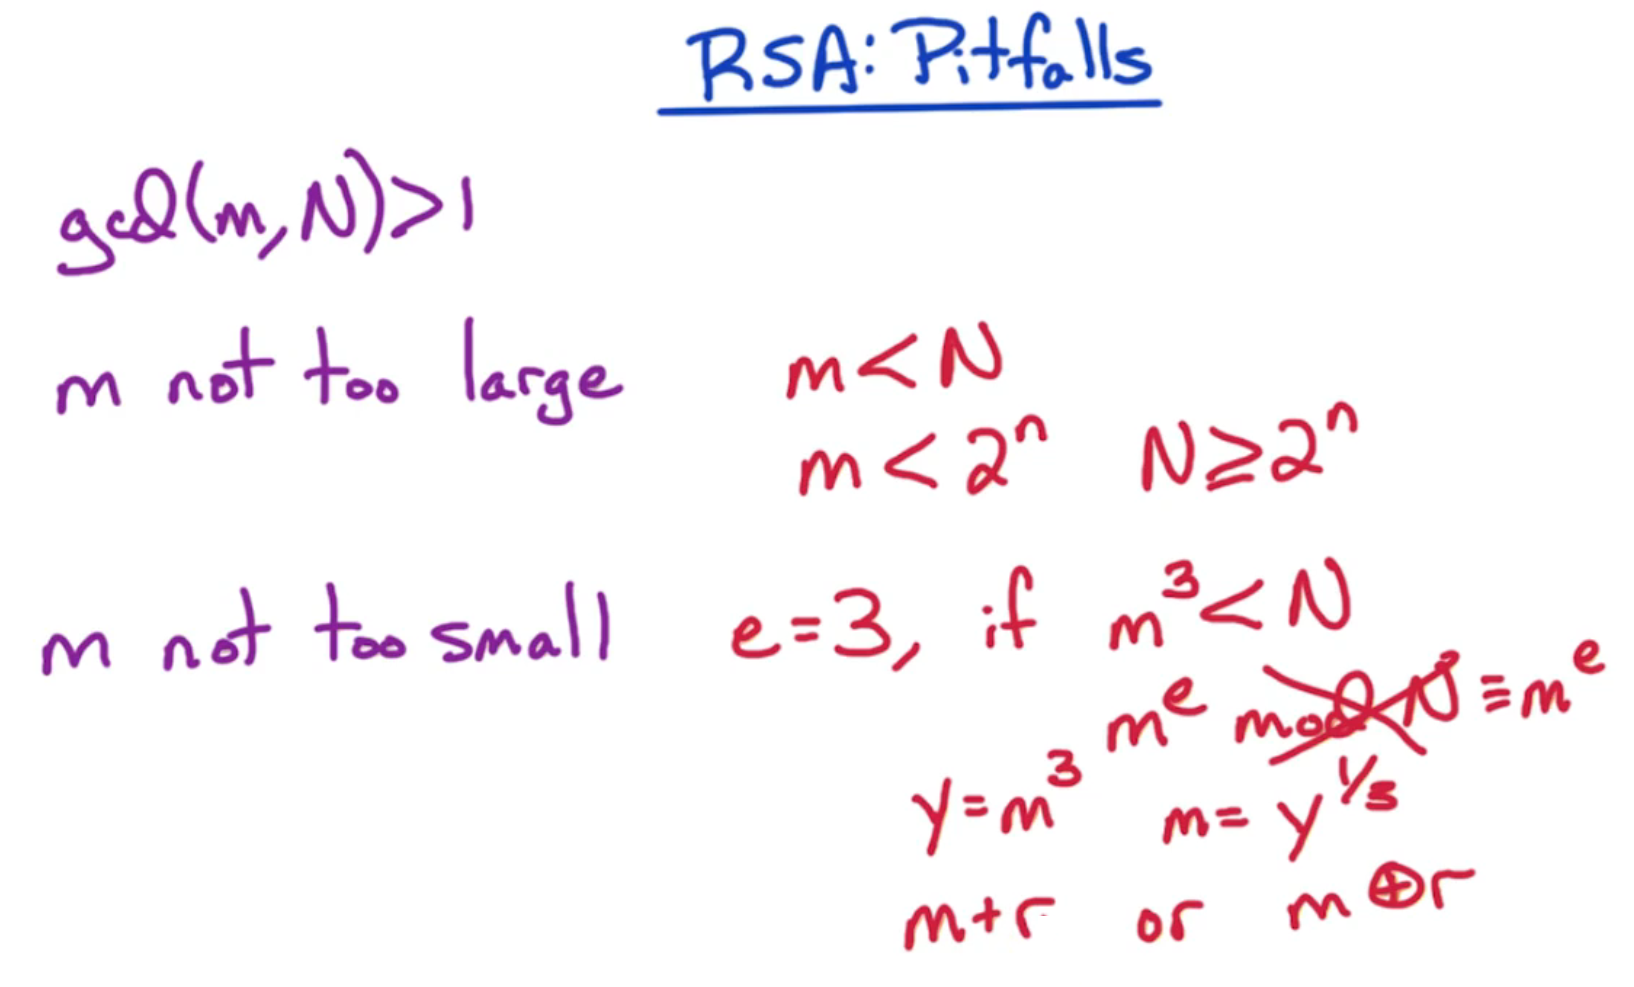 RSA: Pitfalls
gcd(m, N) > 1
m not too large m < N
m < 2ⁿ N ≥ 2ⁿ
m not too small e = 3, if m³ < N
mᵉ mod N ≡ mᵉ
y = m³ m = y^1/3
m + r or m ⊕ r